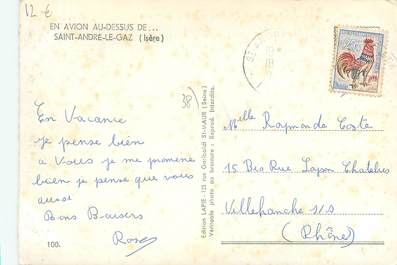 12 €
EN AVION AU-DESSUS DE...
SAINT-ANDRE-LE-GAZ (Isère)
38)
En Vacance
je pense bien
a Vous je me promène
bien je pense que vous
aussi
Bons Baisers
Roses
100.
Edition LAPIE - 125 rue Garibaldi St-MAUR (Seine)
Véritable photo au bromure - Reprod. Interdite
Melle Raymonde Coste
15 Bis Rue Chabert
Villefranche s/s
(Rhône)